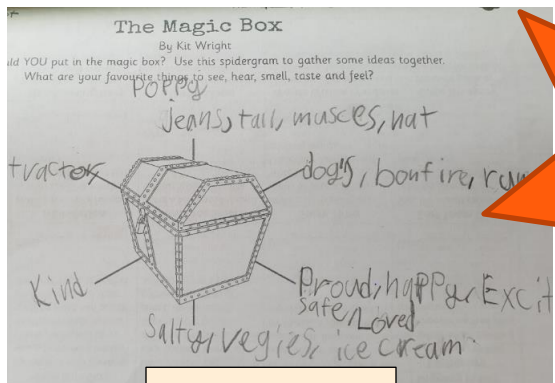 The Magic Box
By Kit Wright
uld YOU put in the magic box? Use this spidergram to gather some ideas together.
What are your favourite things to see, hear, smell, taste and feel?
Poppy
jeans, tall, muscles, hat
tractor,
dog's, bonfire,
Kind
Proud, happy, Excit
safe, Loved
Salty, vegies, ice cream